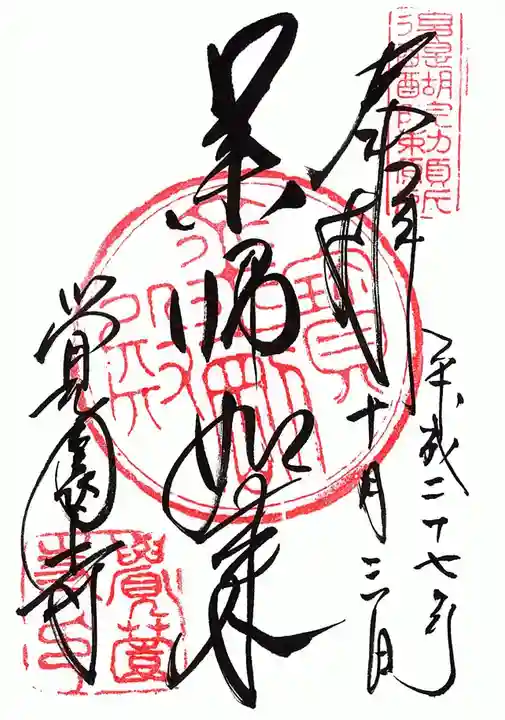 奉拝
平成二十七年
十月三日
薬師如来
覚園寺
覺薗
寺印